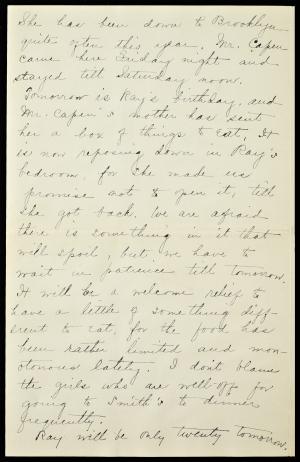 She has been down to Brooklyn
quite often this year. Mr. Capen
came here Friday night and
stayed till Saturday noon.
Tomorrow is Ray's birthday, and
Mr. Capen's mother has sent
her a box of things to eat. It
is now reposing down in Ray's
bedroom, for she made us
promise not to open it, till
she got back. We are afraid
there is something in it that
will spoil, but we have to
wait in patience till tomorrow.
It will be a welcome relief to
have a little of something diff-
erent to eat, for the food has
been rather limited and mon-
otonous lately. I don't blame
the girls who are well-off for
going to Smith's to dinner
frequently.
Ray will be only twenty tomorrow.